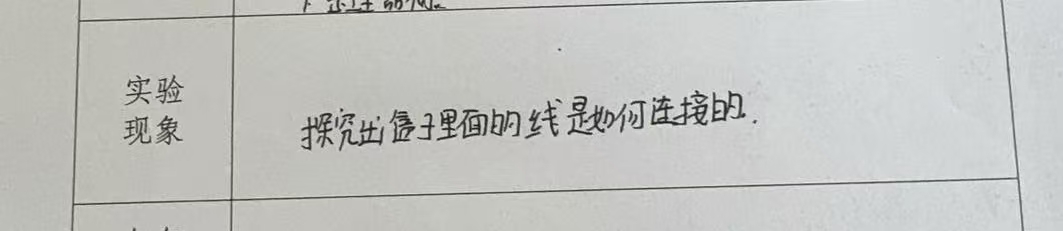 实验
现象
探究出盒子里面的线是如何连接的.